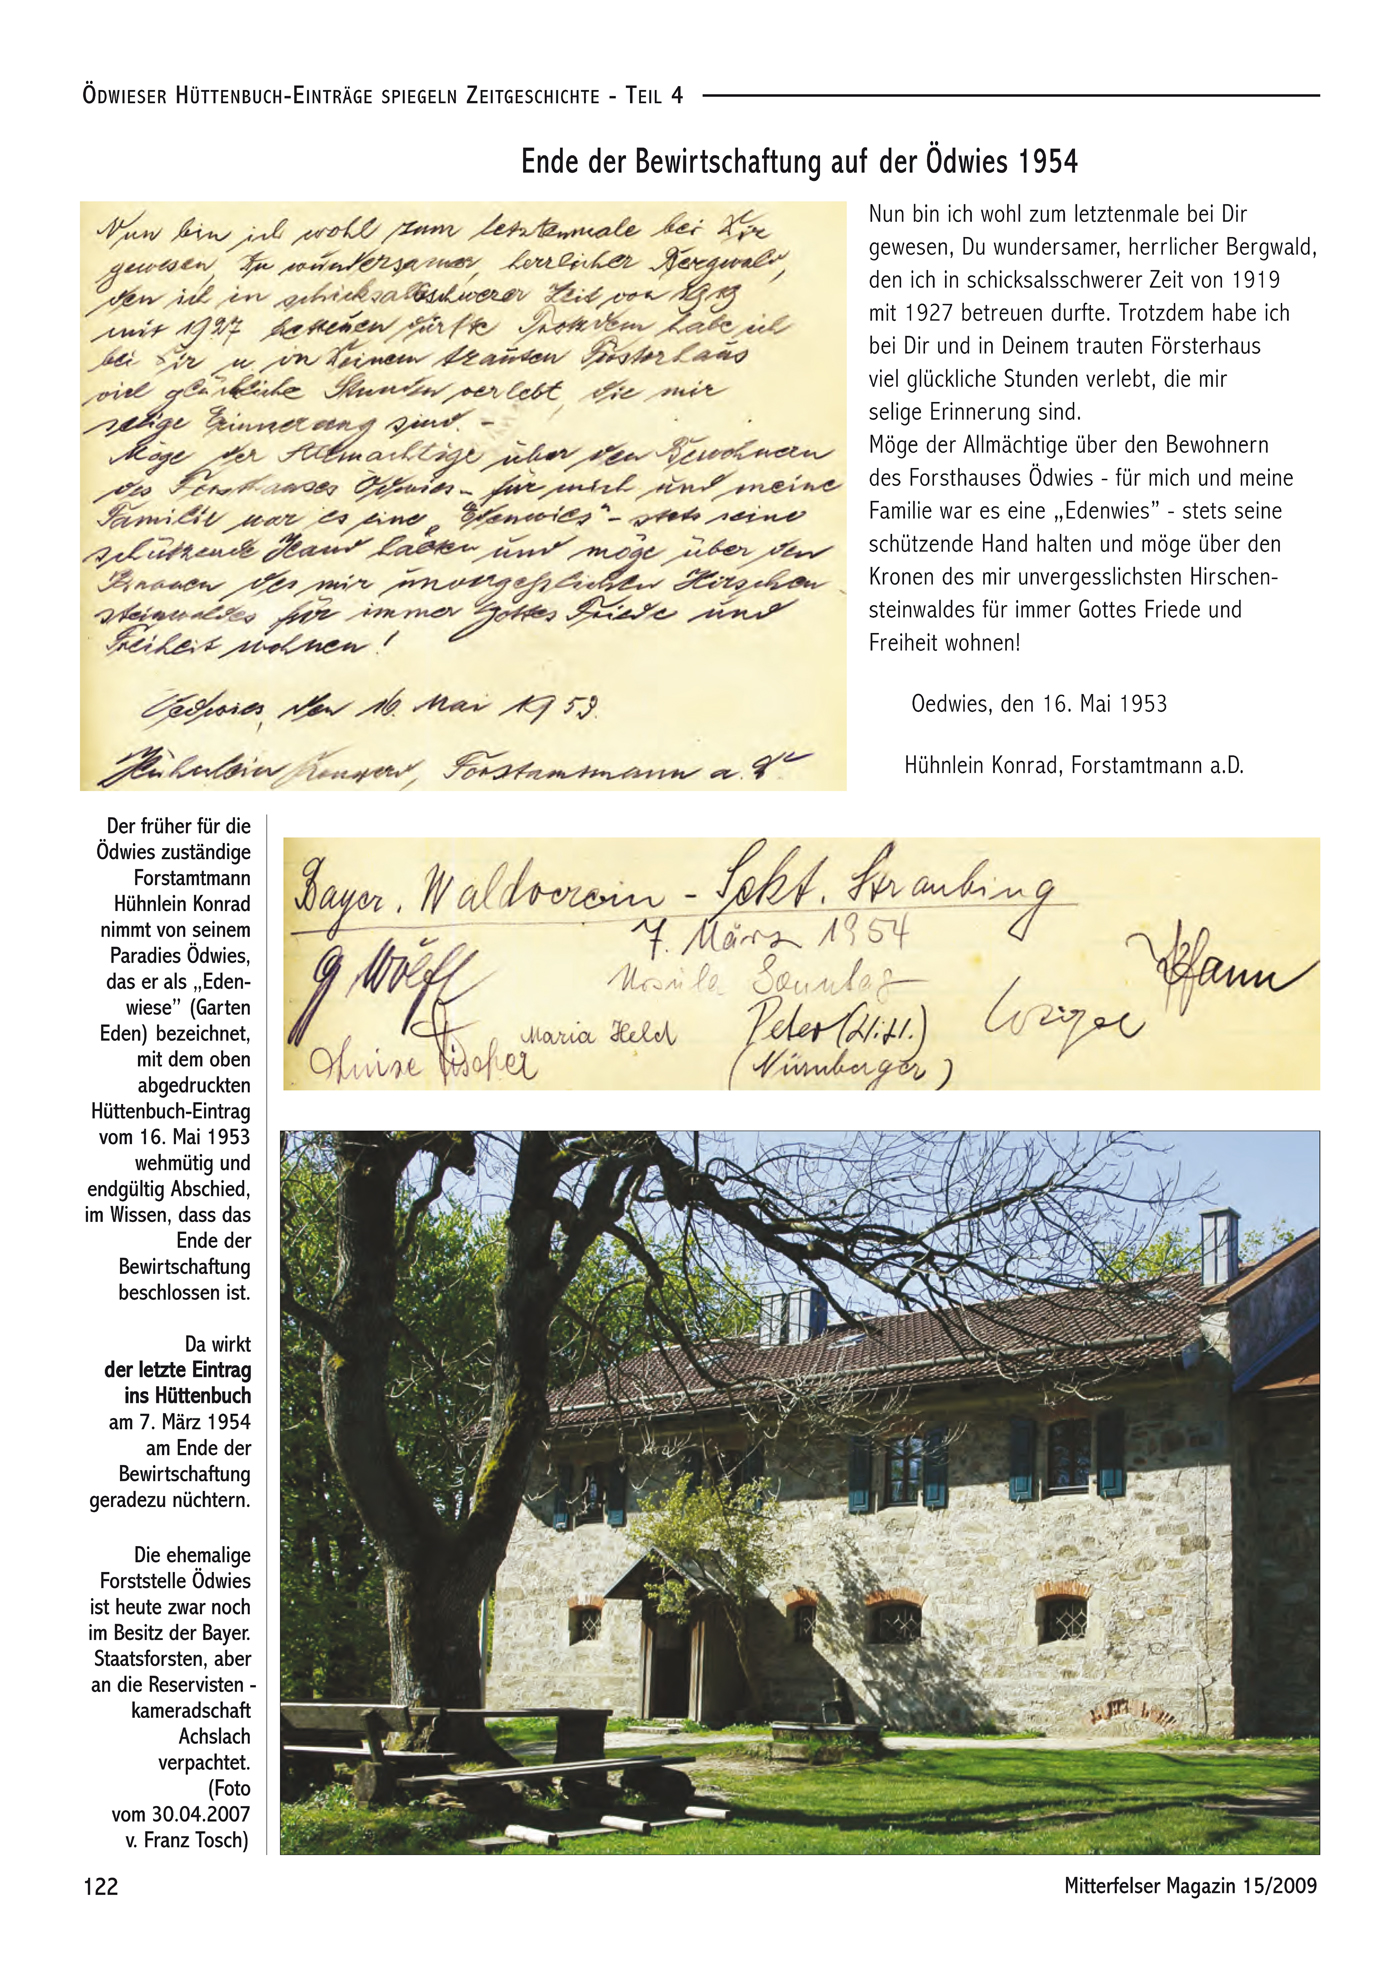 ÖDWIESER HÜTTENBUCH-EINTRÄGE SPIEGELN ZEITGESCHICHTE - TEIL 4
Ende der Bewirtschaftung auf der Ödwies 1954
Nun bin ich wohl zum letztenmale bei Dir
gewesen, Du wundersamer, herrlicher Bergwald,
den ich in schicksalsschwerer Zeit von 1919
mit 1927 betreuen durfte Trotzdem habe ich
bei Dir u in Deinem trauten Försterhaus
viel glückliche Stunden verlebt, die mir
selige Erinnerung sind. -
Möge der Allmächtige über den Bewohnern
des Forsthauses Ödwies - für mich und meine
Familie war es eine „Edenwies" - stets seine
schützende Hand halten und möge über den
Kronen des mir unvergesslichen Hirschen-
steinwaldes für immer Gottes Friede und
Freiheit wohnen!
Oedwies, den 16. Mai 1953.
Hühnlein Konrad, Forstamtmann a. D.
Nun bin ich wohl zum letztenmale bei Dir
gewesen, Du wundersamer, herrlicher Bergwald,
den ich in schicksalsschwerer Zeit von 1919
mit 1927 betreuen durfte. Trotzdem habe ich
bei Dir und in Deinem trauten Försterhaus
viel glückliche Stunden verlebt, die mir
selige Erinnerung sind.
Möge der Allmächtige über den Bewohnern
des Forsthauses Ödwies - für mich und meine
Familie war es eine „Edenwies” - stets seine
schützende Hand halten und möge über den
Kronen des mir unvergesslichsten Hirschen-
steinwaldes für immer Gottes Friede und
Freiheit wohnen!
Oedwies, den 16. Mai 1953
Hühnlein Konrad, Forstamtmann a.D.
Der früher für die
Ödwies zuständige
Forstamtmann
Hühnlein Konrad
nimmt von seinem
Paradies Ödwies,
das er als „Eden-
wiese” (Garten
Eden) bezeichnet,
mit dem oben
abgedruckten
Hüttenbuch-Eintrag
vom 16. Mai 1953
wehmütig und
endgültig Abschied,
im Wissen, dass das
Ende der
Bewirtschaftung
beschlossen ist.
Da wirkt
der letzte Eintrag
ins Hüttenbuch
am 7. März 1954
am Ende der
Bewirtschaftung
geradezu nüchtern.
Die ehemalige
Forststelle Ödwies
ist heute zwar noch
im Besitz der Bayer.
Staatsforsten, aber
an die Reservisten -
kameradschaft
Achslach
verpachtet.
(Foto
vom 30.04.2007
v. Franz Tosch)
Bayer. Waldverein - Sekt. Straubing
7. März 1954
G Wölfl
Ursula Sonntag
Pfann
Maria Held
Peter (H.H.)
Luise Fischer
(Nürnberger)
122
Mitterfelser Magazin 15/2009